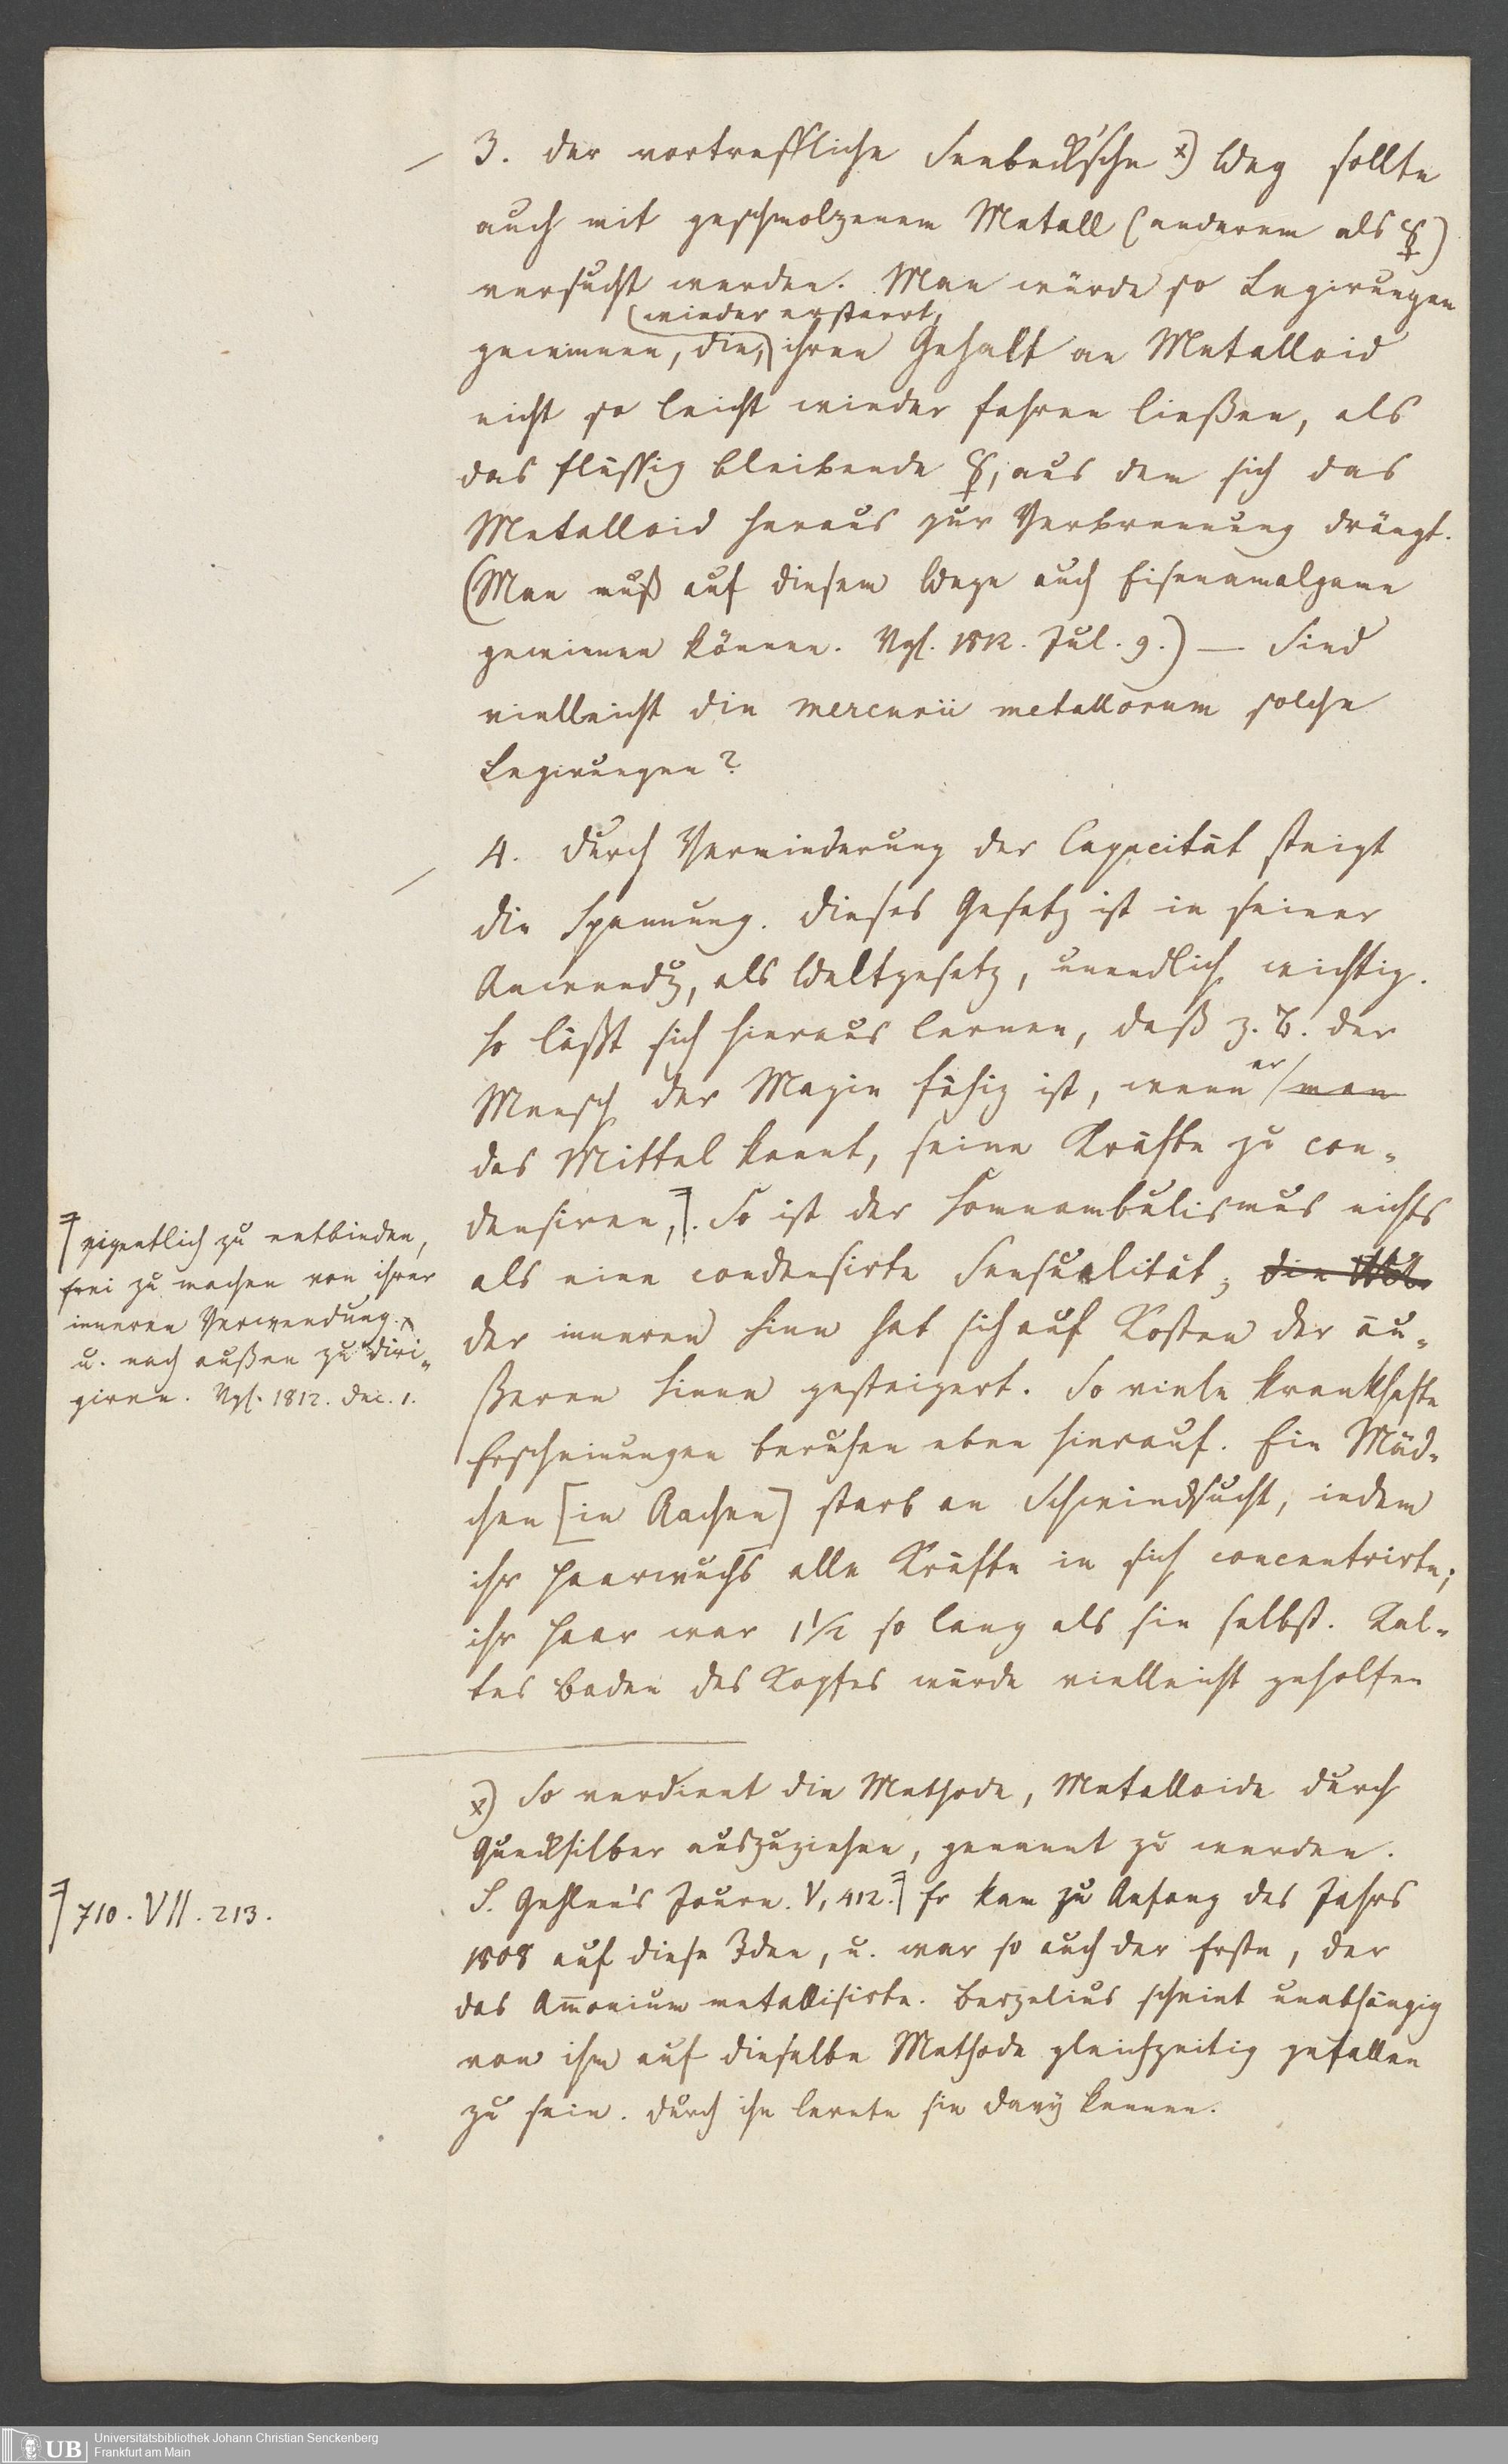 3. Der vortreffliche Seebeck'sche x) Weg sollte
auch mit geschmolzenem Metall (anderem als ☿)
versucht werden. Man würde so Legirungen
(wieder erstarrt,
gewinnen, die,) ihren Gehalt an Metalloid
nicht so leicht wieder fahren ließen, als
das flüssig bleibende ☿, aus dem sich das
Metalloid heraus zur Verbrennung drängt.
(Man muß auf diesem Wege auch Eisenamalgame
gewinnen können. Vgl. 1812. Jul. 9.) — Sind
vielleicht die mercurii metallorum solche
Legirungen?
4. Durch Verminderung der Capacität steigt
die Spannung. Dieses Gesetz ist in seiner
Anwendg, als Weltgesetz, unendlich wichtig.
So läßt sich hieraus lernen, daß z. B. der
Mensch der Magie fähig ist, wenn er/ man
das Mittel kennt, seine Kräfte zu con-
densiren,⌉. So ist der Somnambulismus nichts
als eine condensirte Sensualität; die
der inneren Sinn hat sich auf Kosten der äu-
ßeren Sinne gesteigert. So viele krankhafte
Erscheinungen beruhen eben hierauf. Ein Mäd-
chen [in Aachen] starb an Schwindsucht, indem
ihr Haarwuchs alle Kräfte in sich concentrirte;
ihr Haar war 1 1/2 so lang als sie selbst. Kal-
tes Baden des Kopfes würde vielleicht geholfen
⌉ eigentlich zu entbinden,
frei zu machen von ihrer
inneren Verwendung
u. nach außen zu diri-
giren. Vgl. 1812. Dec. 1.
x) So verdient die Methode, Metalloide durch
Quecksilber auszuziehen, genannt zu werden.
S. Gehlen's Journ. V, 412.⌉ Er kam zu Anfang des Jahrs
1808 auf diese Idee, u. war so auch der Erste, der
das Am̄onium metallisirte. Berzelius scheint unabhängig
von ihm auf dieselbe Methode gleichzeitig gefallen
zu sein. Durch ihn lernte sie Davy kennen.
⌉ 710. VII. 213.
UB
Universitätsbibliothek Johann Christian Senckenberg
Frankfurt am Main